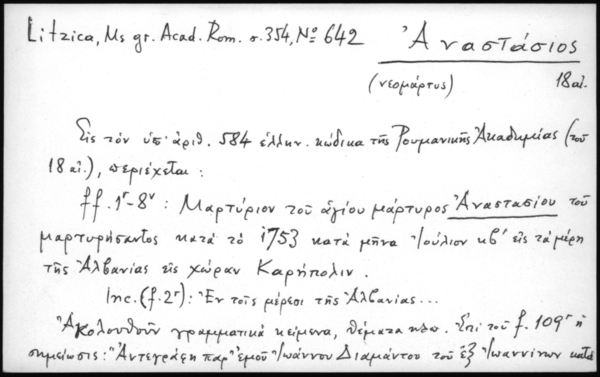 Litzica, Ms gr. Acad. Rom. σ. 354, № 642
Ἀναστάσιος
(νεομάρτυς) 18 αἰ.
Εἰς τὸν ὑπ' ἀριθ. 584 ἑλλην. κώδικα τῆς Ρουμανικῆς Ἀκαδημίας (τοῦ
18 αἰ.), περιέχεται :
ff. 1r-8v : Μαρτύριον τοῦ ἁγίου μάρτυρος Ἀναστασίου τοῦ
μαρτυρήσαντος κατὰ τὸ 1753 κατὰ μῆνα Ἰούλιον κβ' εἰς τὰ μέρη
τῆς Ἀλβανίας εἰς χώραν Καρήπολιν.
Inc. (f. 2r) : Ἐν τοῖς μέρεσι τῆς Ἀλβανίας...
Ἀκολουθοῦν γραμματικὰ κείμενα, θέματα κλπ. Ἐπὶ τοῦ f. 109r ἡ
σημείωσις : "Ἀντεγράφη παρ' ἐμοῦ Ἰωάννου Διαμάντου τοῦ ἐξ Ἰωαννίνων κατὰ